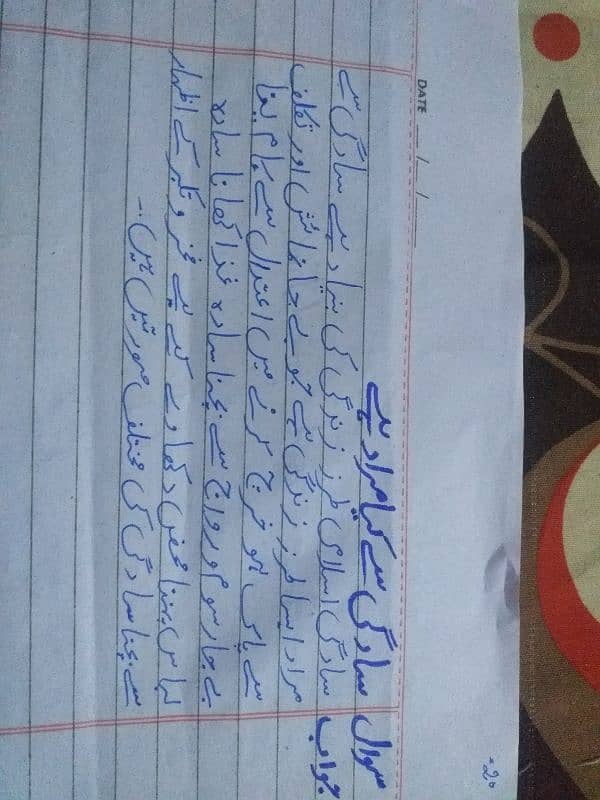 DATE / /
سوال سادگی سے کیا مراد ہے
جواب سادگی اسلامی طرز زندگی کی بنیاد ہے سادگی سے
مراد ایسا طرز زندگی ہے جو بے جا نمائش اور تکلف
سے پاک ہو خرچ کرنے میں اعتدال سے کام لینا
بے جا رسوم و رواج سے بچنا سادہ غذا کھانا سادہ
لباس پہننا محض دکھاوے کے لیے فخر و تکبر کے اظہار
سے بچنا سادگی کی مختلف صورتیں ہیں۔